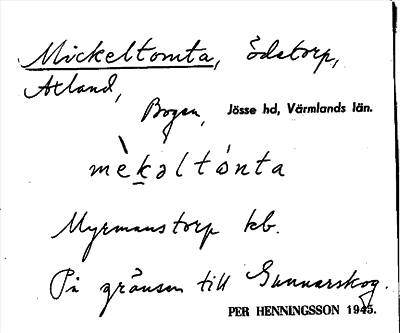 Mickeltomta, ödetorp,
Axland,
Bogen, Jösse hd, Värmlands län.
mèkəltónta
Myrmanstorp kb.
På gränsen till Gunnarskog.
PER HENNINGSSON 1945.